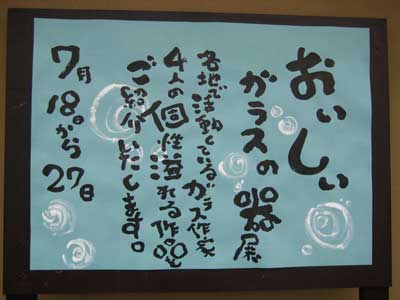 おいしい
ガラスの器展
各地で活動しているガラス作家
4人の個性溢れる作品を
ご紹介いたします。
7月
18日から
27日